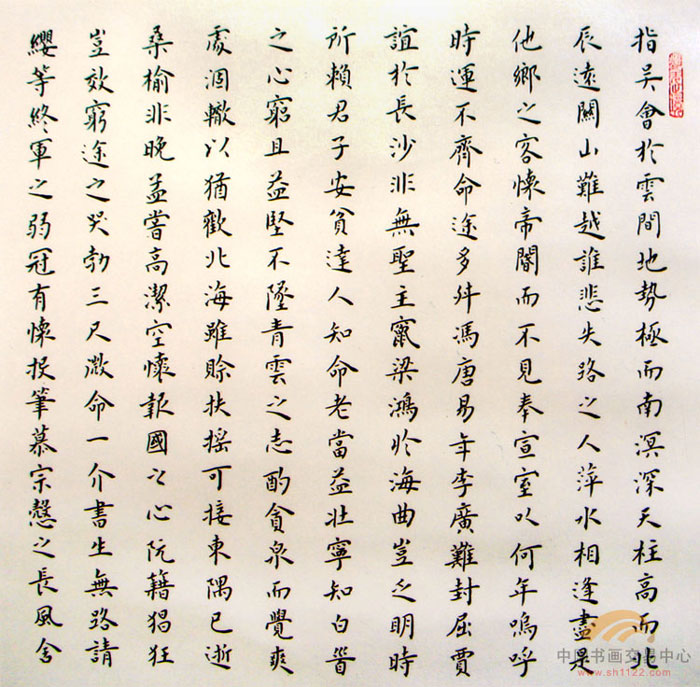 指吴會於雲間地勢極而南溟深天柱高而北
辰遠關山難越誰悲失路之人萍水相逢盡是
他鄉之客懷帝閽而不見奉宣室以何年嗚呼
時運不齊命途多舛馮唐易年李廣難封屈賈
誼於長沙非無聖主竄梁鴻於海曲豈乏明時
所賴君子安貧達人知命老當益壯寧知白首
之心窮且益堅不墜青雲之志酌貪泉而覺爽
處涸轍以猶歡北海雖賒扶摇可接東隅已逝
桑榆非晚孟嘗高潔空懷報國之心阮籍猖狂
豈效窮途之哭勃三尺微命一介書生無路請
纓等終軍之弱冠有懷投筆慕宗愨之長風舍
中国书画交易中心
www.sh1122.com